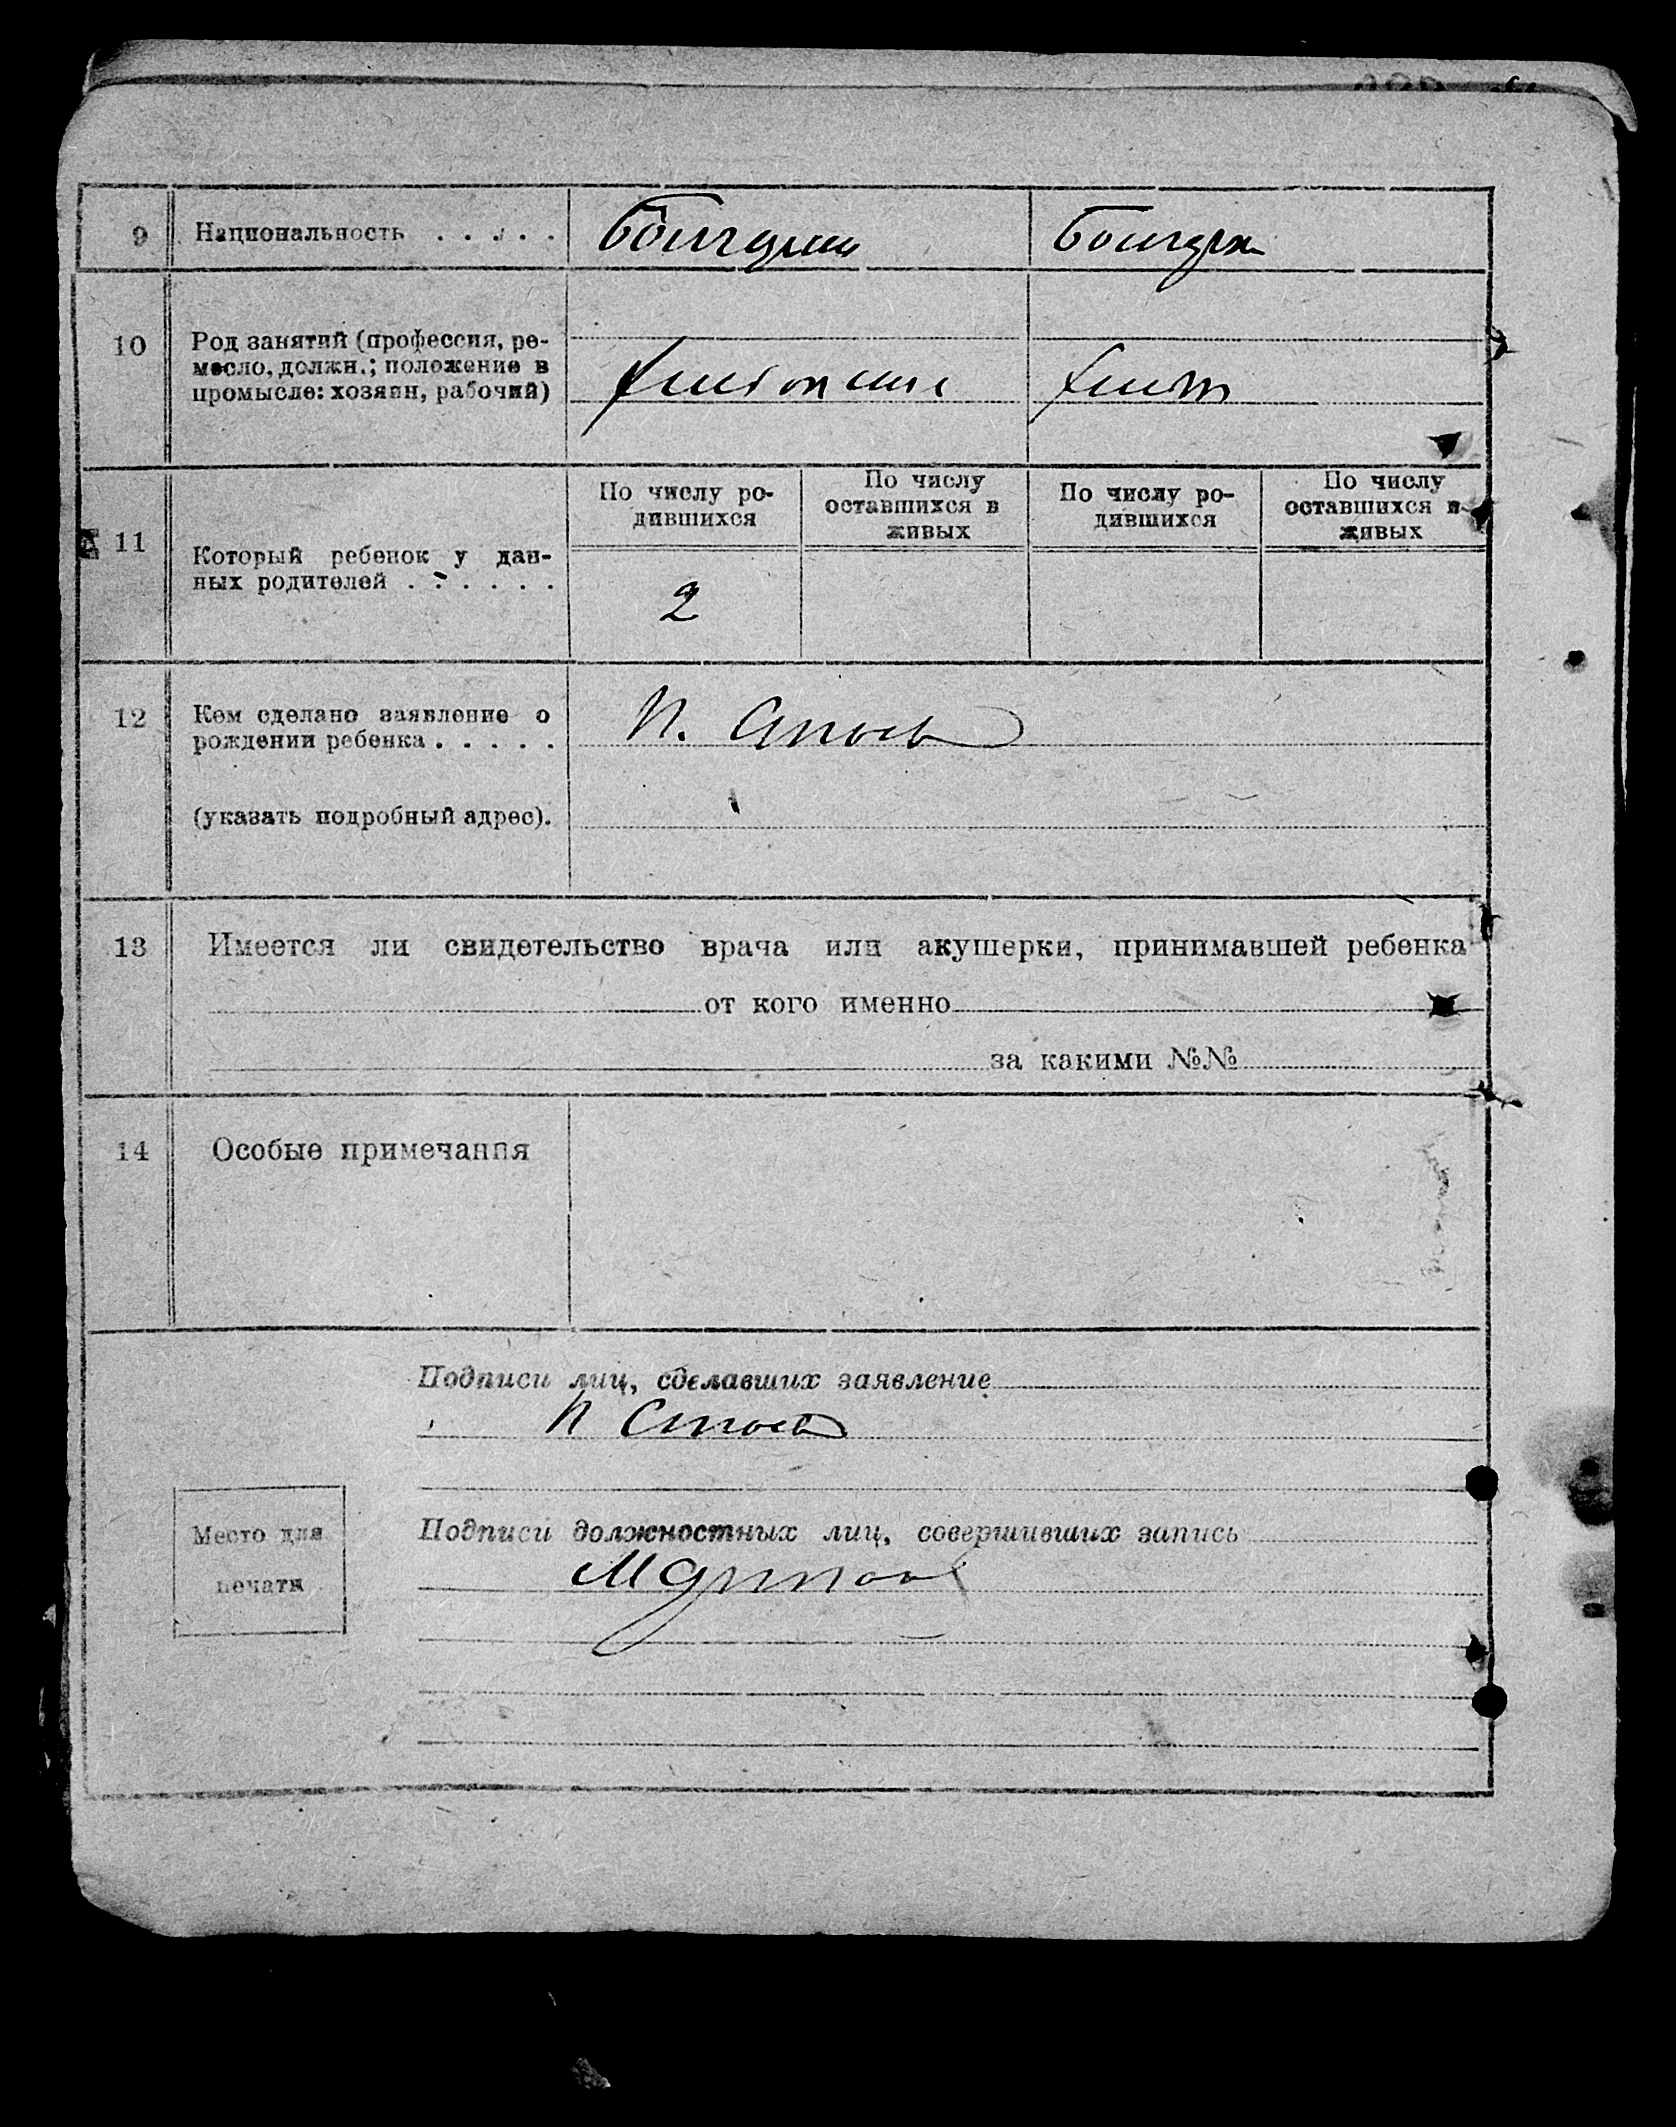 9 Национальность . . . . . Болгарин Болгарк
10 Род занятий (профессия, ре-
месло, должн.; положение в
промысле: хозяин, рабочий)
хлебопаш хлеб
По числу ро-
дившихся
По числу
оставшихся в
живых
По числу ро-
дившихся
По числу
оставшихся в
живых
11 Который ребенок у дан-
ных родителей . . . . . .
2
12 Кем сделано заявление о
рождении ребенка . . . . .
П. Стоев
(указать подробный адрес).
13 Имеется ли свидетельство врача или акушерки, принимавшей ребенка
от кого именно
за какими №№
14 Особые примечания
Подписи лиц, сделавших заявление
П Стоев
Место для
печати
Подписи должностных лиц, совершивших запись